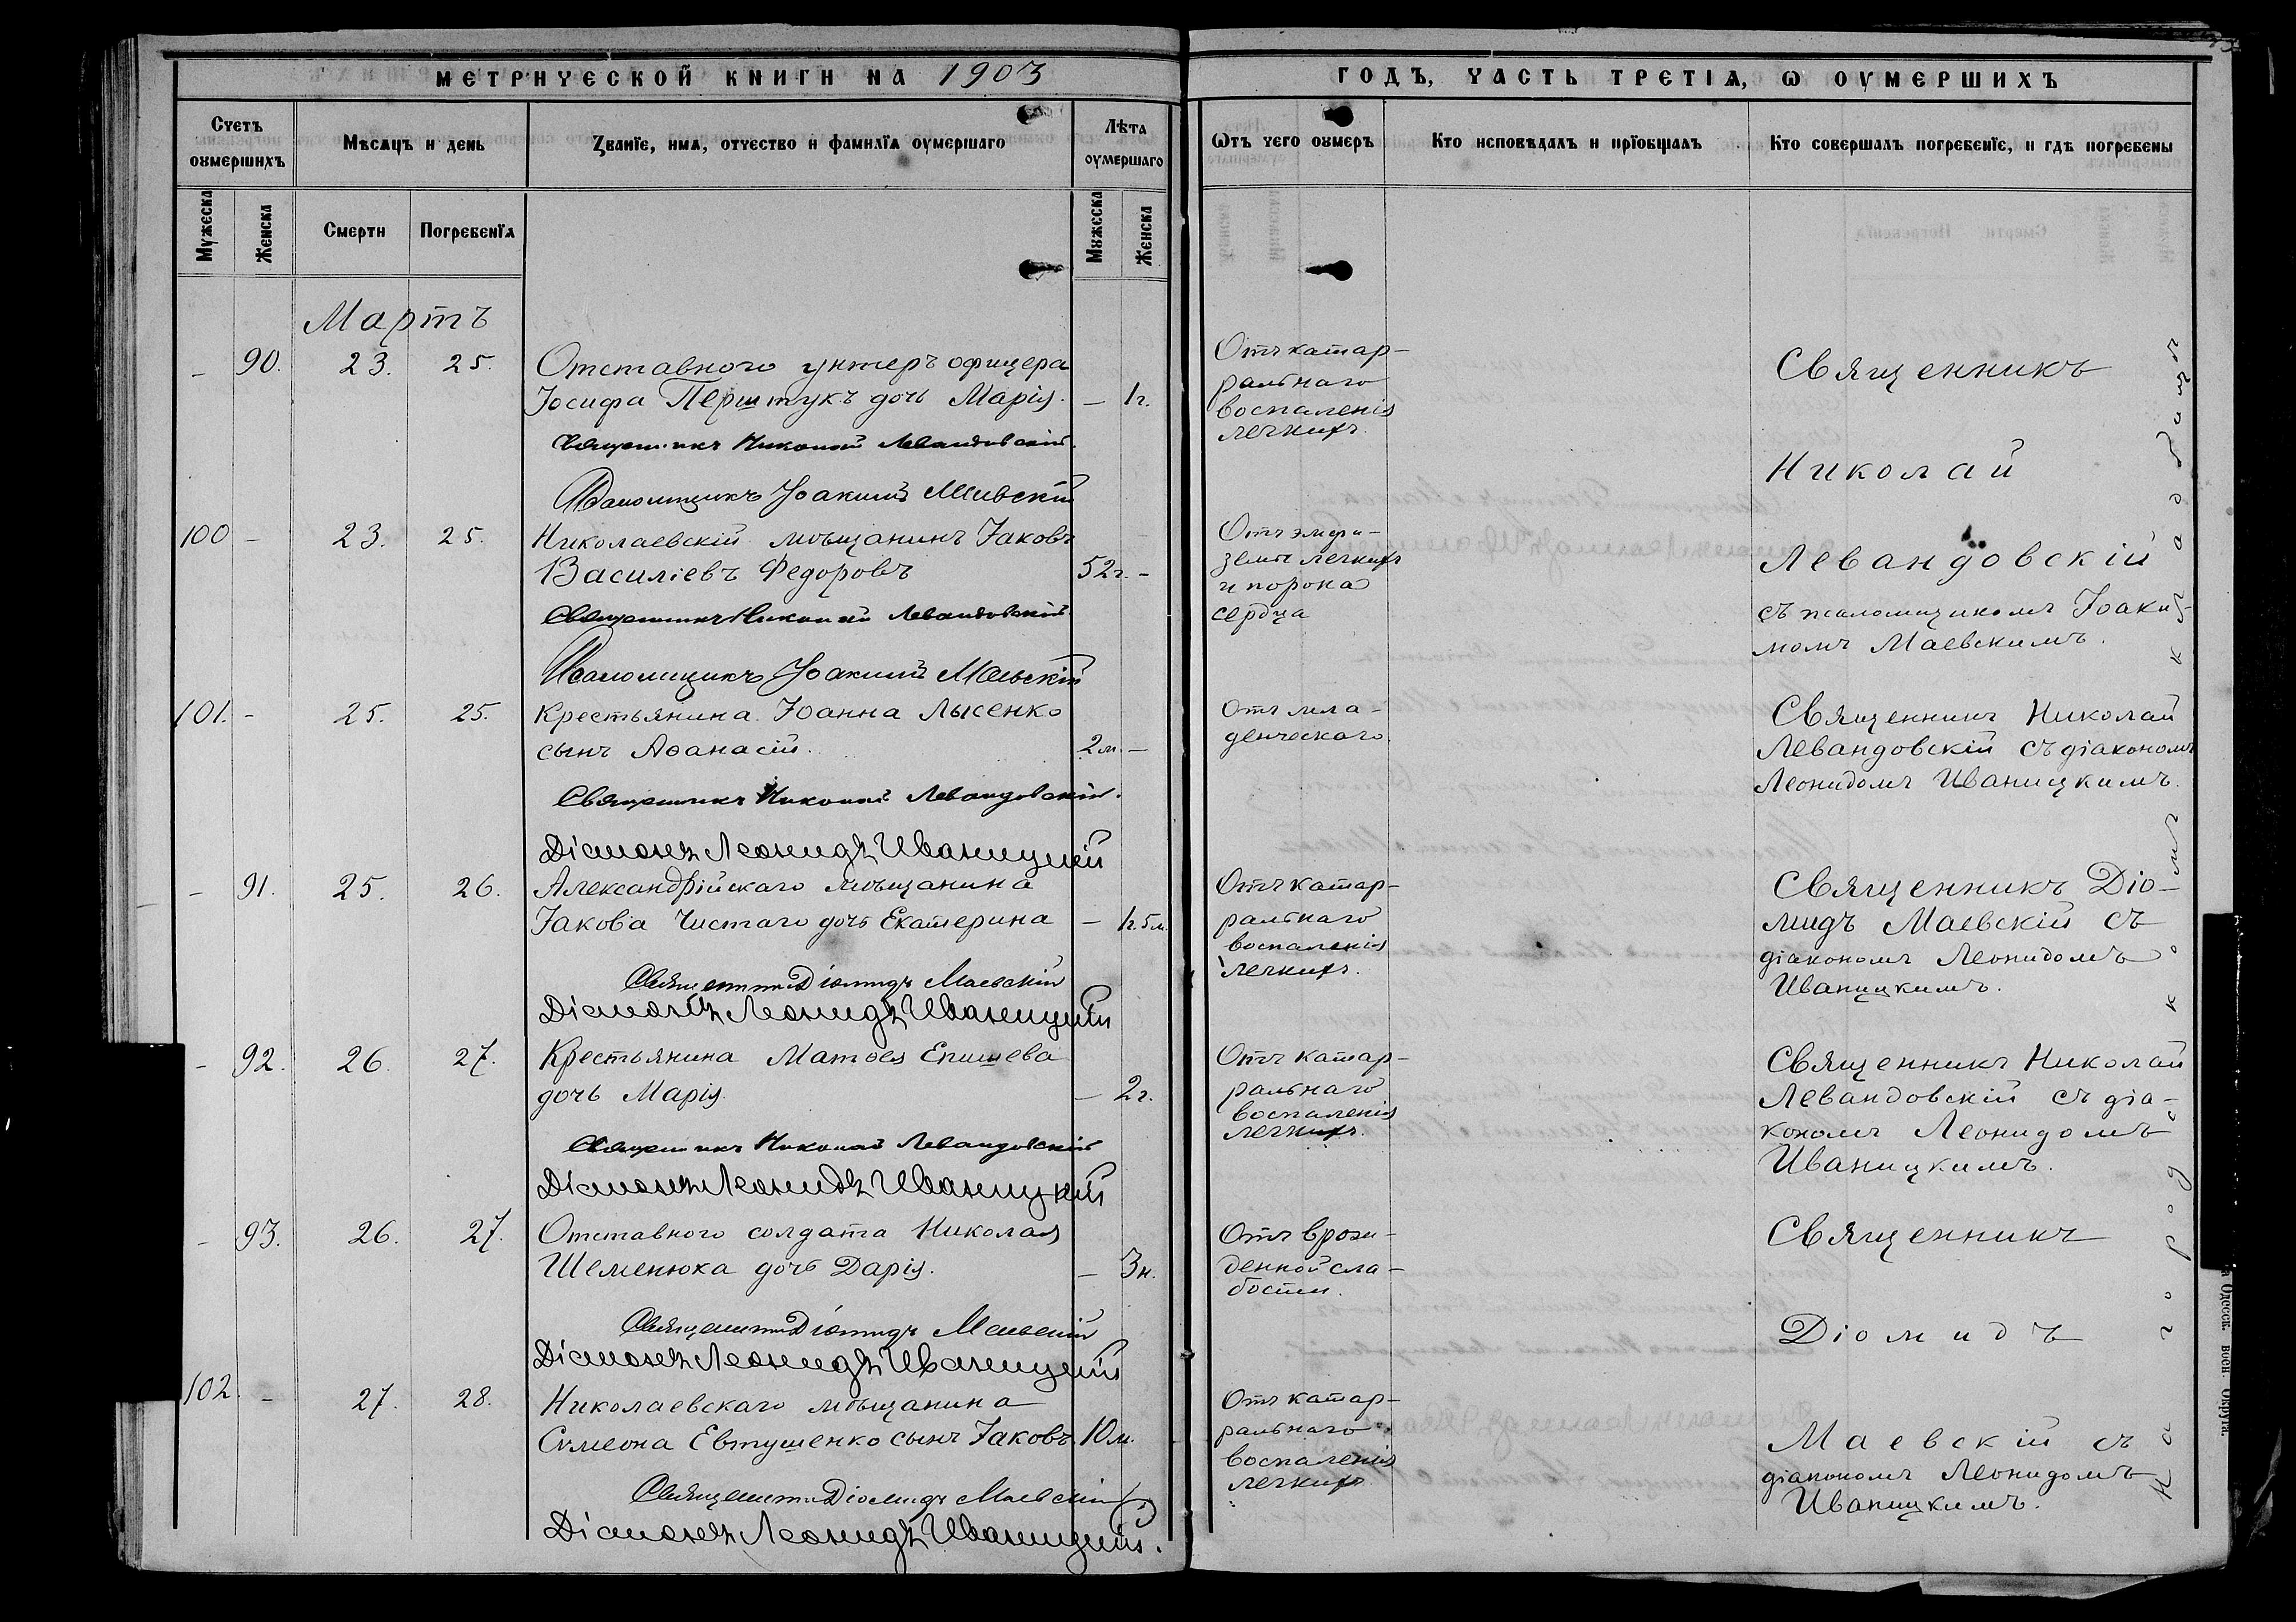 МЕТРИЧЕСКОЙ КНИГИ НА 1903
ГОДЪ, ЧАСТЬ ТРЕТІѦ, Ѡ ОУМЕРШИХЪ
Счетъ оумершихъ
Мѣсѧцъ и день
Званїе, имѧ, отчество и фамилїѧ оумершаго
Лѣта оумершаго
Ѿтъ чего оумеръ
Кто исповѣдалъ и прїобщалъ
Кто совершалъ погребенїе, и гдѣ погребены
Мужеска
Женска
Смерти
Погребенїѧ
Мужеска
Женска
Мартъ
– 90. 23. 25. Отставного унтеръ офицера
Іосифа Перштукъ дочь Марія. – 1г.
Священникъ Николай Левандовскій.
Псаломщикъ Іоакимъ Маевскій
Отъ катар-
ральнаго
воспаленія
легкихъ.
Священникъ
Николай
100 – 23. 25. Николаевскій мѣщанинъ Іаковъ
Василіевъ Федоровъ 52г. –
Священникъ Николай Левандовскій.
Псаломщикъ Іоакимъ Маевскій
Отъ эмфи-
земы легкихъ
и порока
сердца
Левандовскій
съ псаломщикомъ Іоаки-
момъ Маевскимъ.
101. – 25. 25. Крестьянина Іоанна Лысенко
сынъ Аѳанасій. 2м. –
Священникъ Николай Левандовскій.
Діаконъ Леонидъ Иваницкій
Отъ мла-
денческаго.
Священникъ Николай
Левандовскій съ діакономъ
Леонидомъ Иваницкимъ.
– 91. 25. 26. Александрійскаго мѣщанина
Іакова Чистаго дочь Екатерина – 1г.5м.
Священникъ Діомидъ Маевскій
Діаконъ Леонидъ Иваницкій
Отъ катар-
ральнаго
воспаленія
легкихъ.
Священникъ Діо-
мидъ Маевскій съ
діакономъ Леонидомъ
Иваницкимъ.
– 92. 26. 27. Крестьянина Матѳея Епишева
дочь Марія. – 2г.
Священникъ Николай Левандовскій
Діаконъ Леонидъ Иваницкій
Отъ катар-
ральнаго
воспаленія
легкихъ.
Священникъ Николай
Левандовскій съ діа-
кономъ Леонидомъ
Иваницкимъ.
– 93. 26. 27. Отставного солдата Николая
Шеменюка дочь Дарія. – 3н.
Священникъ Діомидъ Маевскій
Діаконъ Леонидъ Иваницкій
Отъ врож-
денной сла-
бости.
Священникъ
Діомидъ
102. – 27. 28. Николаевскаго мѣщанина
Сѵмеона Евтушенко сынъ Іаковъ. 10м.
Священникъ Діомидъ Маевскій
Діаконъ Леонидъ Иваницкій.
Отъ катар-
ральнаго
воспаленія
легкихъ
Маевскій съ
діакономъ Леонидомъ
Иваницкимъ.
На городскомъ кладбищѣ
Одесск. воен. Округа.